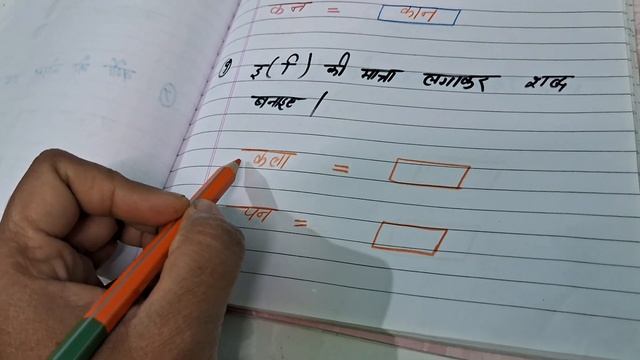 कन = कान
इ( ि ) की मात्रा लगाकर शब्द
बनाइए |
कला =
पन =